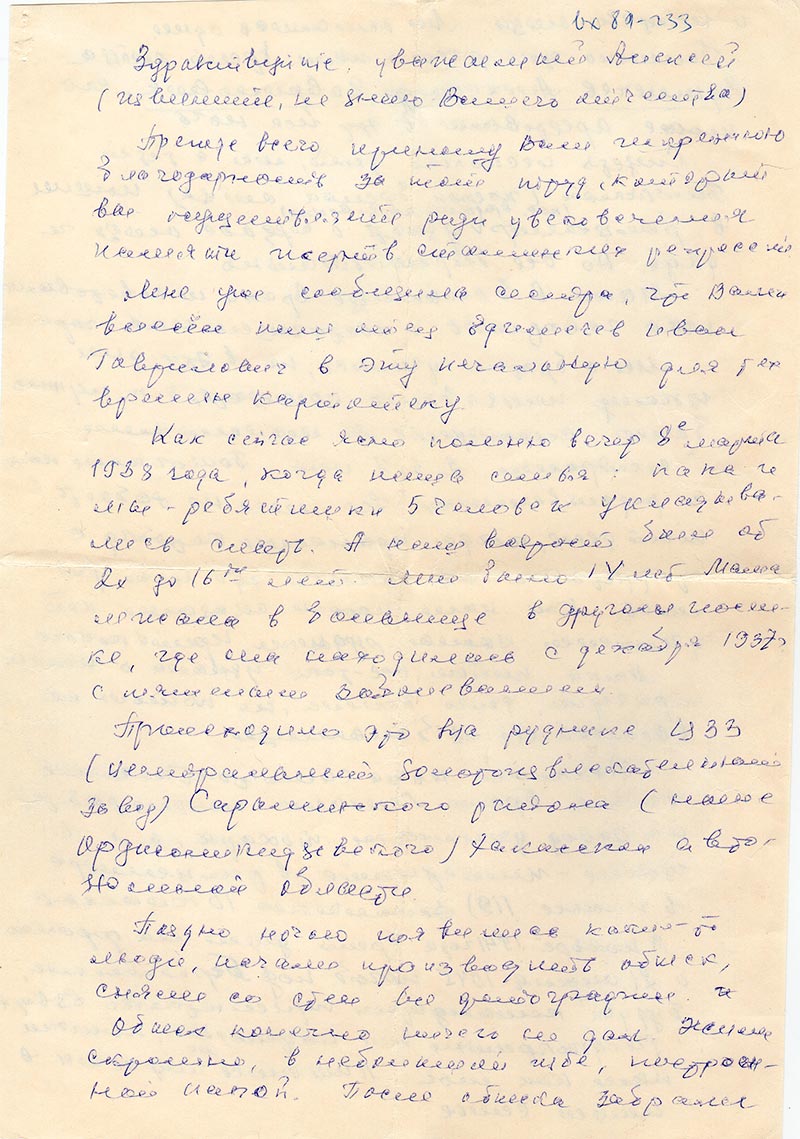 вх 89-233
Здравствуйте, уважаемый Алексей
(извините, не знаю Вашего отчества)
Прежде всего приношу Вам искреннюю
благодарность за тот труд, который
вы осуществляете ради увековечения
памяти жертв сталинских репрессий
Мне уже сообщила сестра, что Вами
внесён наш отец Иван
Гаврилович в эту печальную для тех
времен картотеку.
Как сейчас ясно помню вечер 8е марта
1938 года, когда наша семья: папа и
мы - ребятишки 5 человек укладыва-
лись спать. А наш возраст был от
2х до 16ти лет. Мне было 14 лет Мама
лежала в больнице в другом посел-
ке, где она находилась с декабря 1937г
с тяжелым заболеванием.
Происходило это на руднике ЦЗЗ
(Центральный золотоизвлекательный
завод) Саралинского района (ныне
Орджоникидзевского) Хакасской авто-
номной области.
Поздно ночью появились какие-то
люди, начали производить обыск,
сняли со стен все фотографии.
Обыск конечно ничего не дал. Жили
скромно, в небольшой избе, построен-
ной папой. После обыска забрали